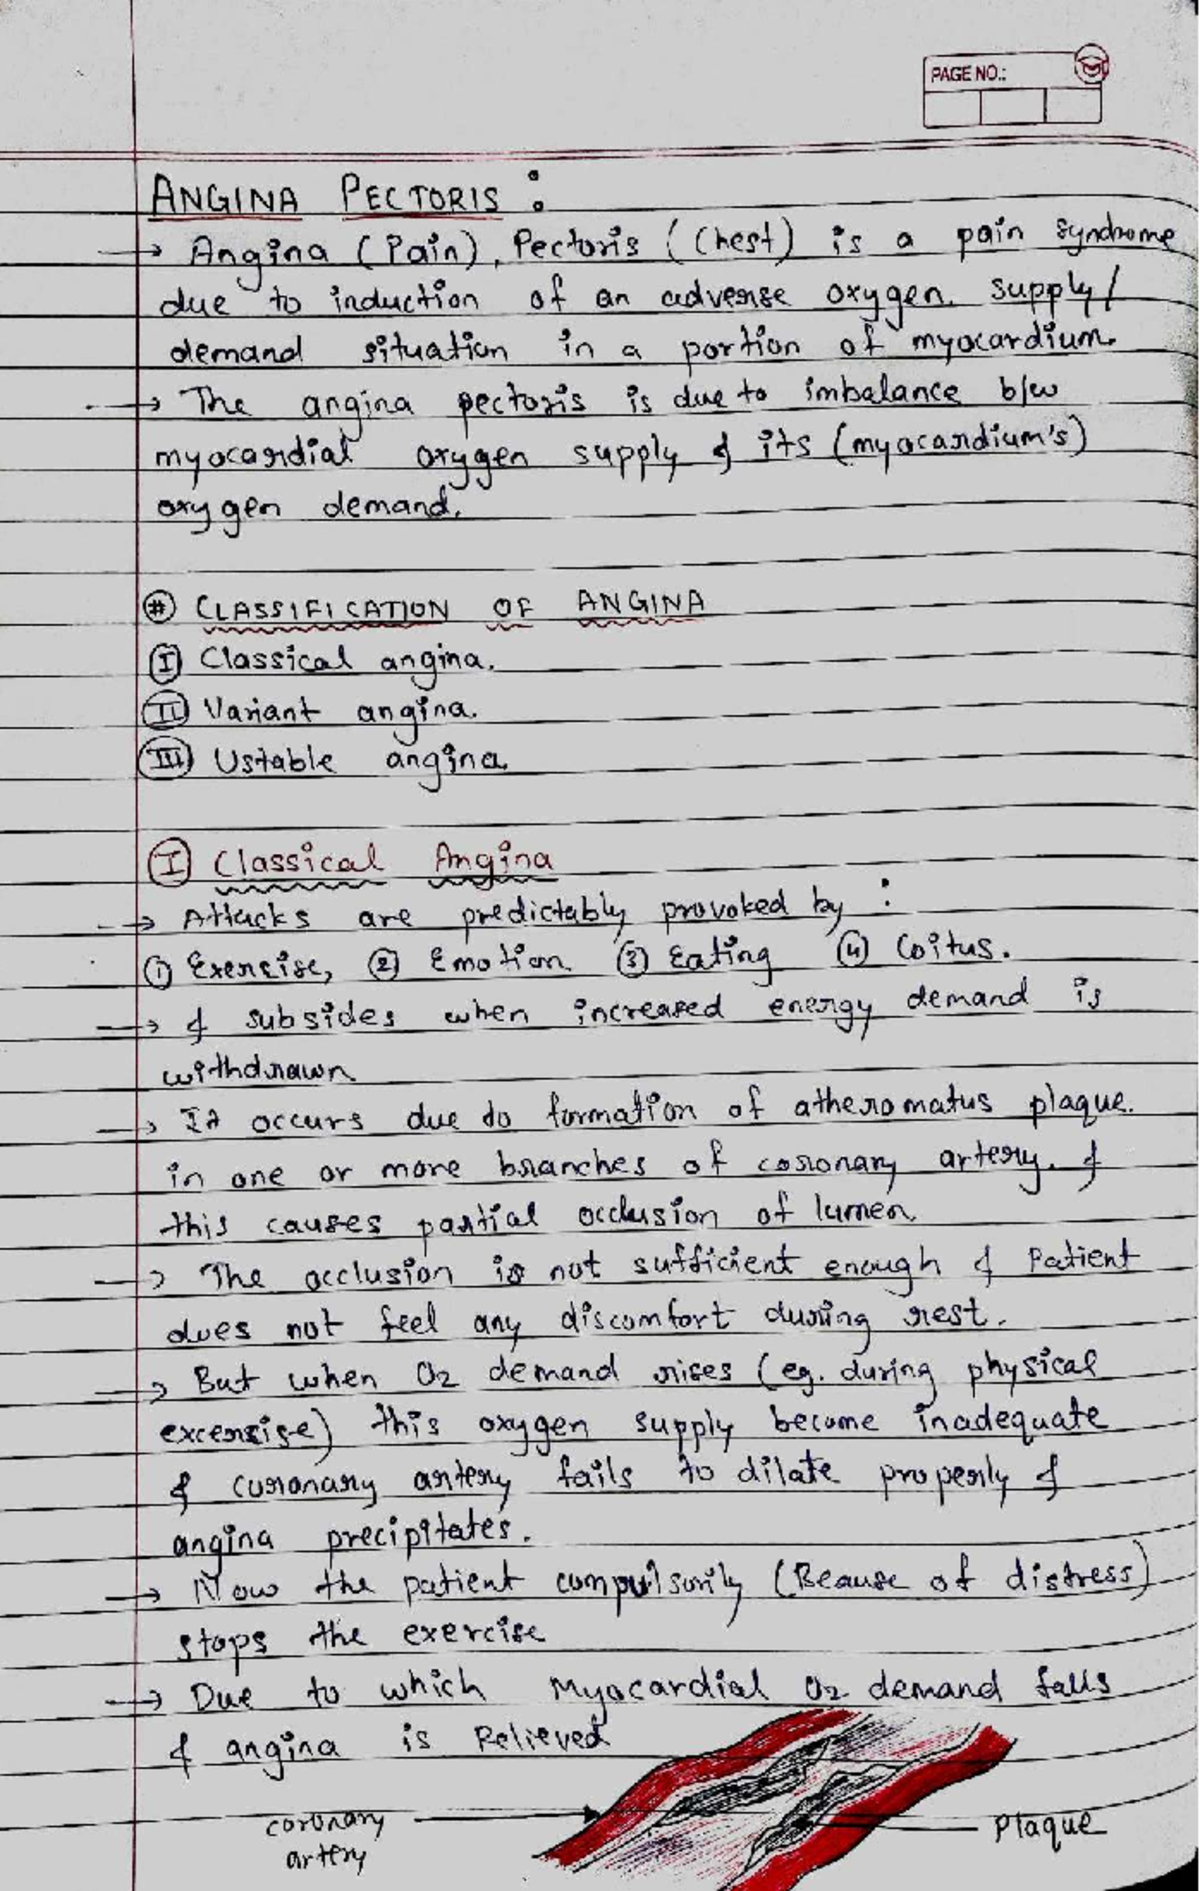 PAGE NO.:
ANGINA PECTORIS :
→ Angina (Pain), Pectoris (Chest) is a pain syndrome
due to induction of an adverse oxygen supply/
demand situation in a portion of myocardium.
→ The angina pectoris is due to imbalance b/w
myocardial oxygen supply & its (myocardium's)
oxygen demand.
# CLASSIFICATION OF ANGINA
I Classical angina.
II Variant angina.
III Ustable angina
I Classical Angina
→ Attacks are predictably provoked by :
① Exercise, ② Emotion ③ Eating ④ Coitus.
→ & subsides when increased energy demand is
withdrawn
→ It occurs due do formation of atheromatus plaque.
in one or more branches of coronary artery. &
this causes partial occlusion of lumen.
→ The occlusion is not sufficient enough & Patient
does not feel any discomfort during rest.
→ But when O2 demand rises (eg. during physical
excercise) this oxygen supply become inadequate
& coronary artery fails to dilate properly &
angina precipitates.
→ Now the patient compulsorily (Beause of distress)
stops the exercise
→ Due to which Myocardial O2 demand falls
& angina is Relieved
coronary
artery
Plaque